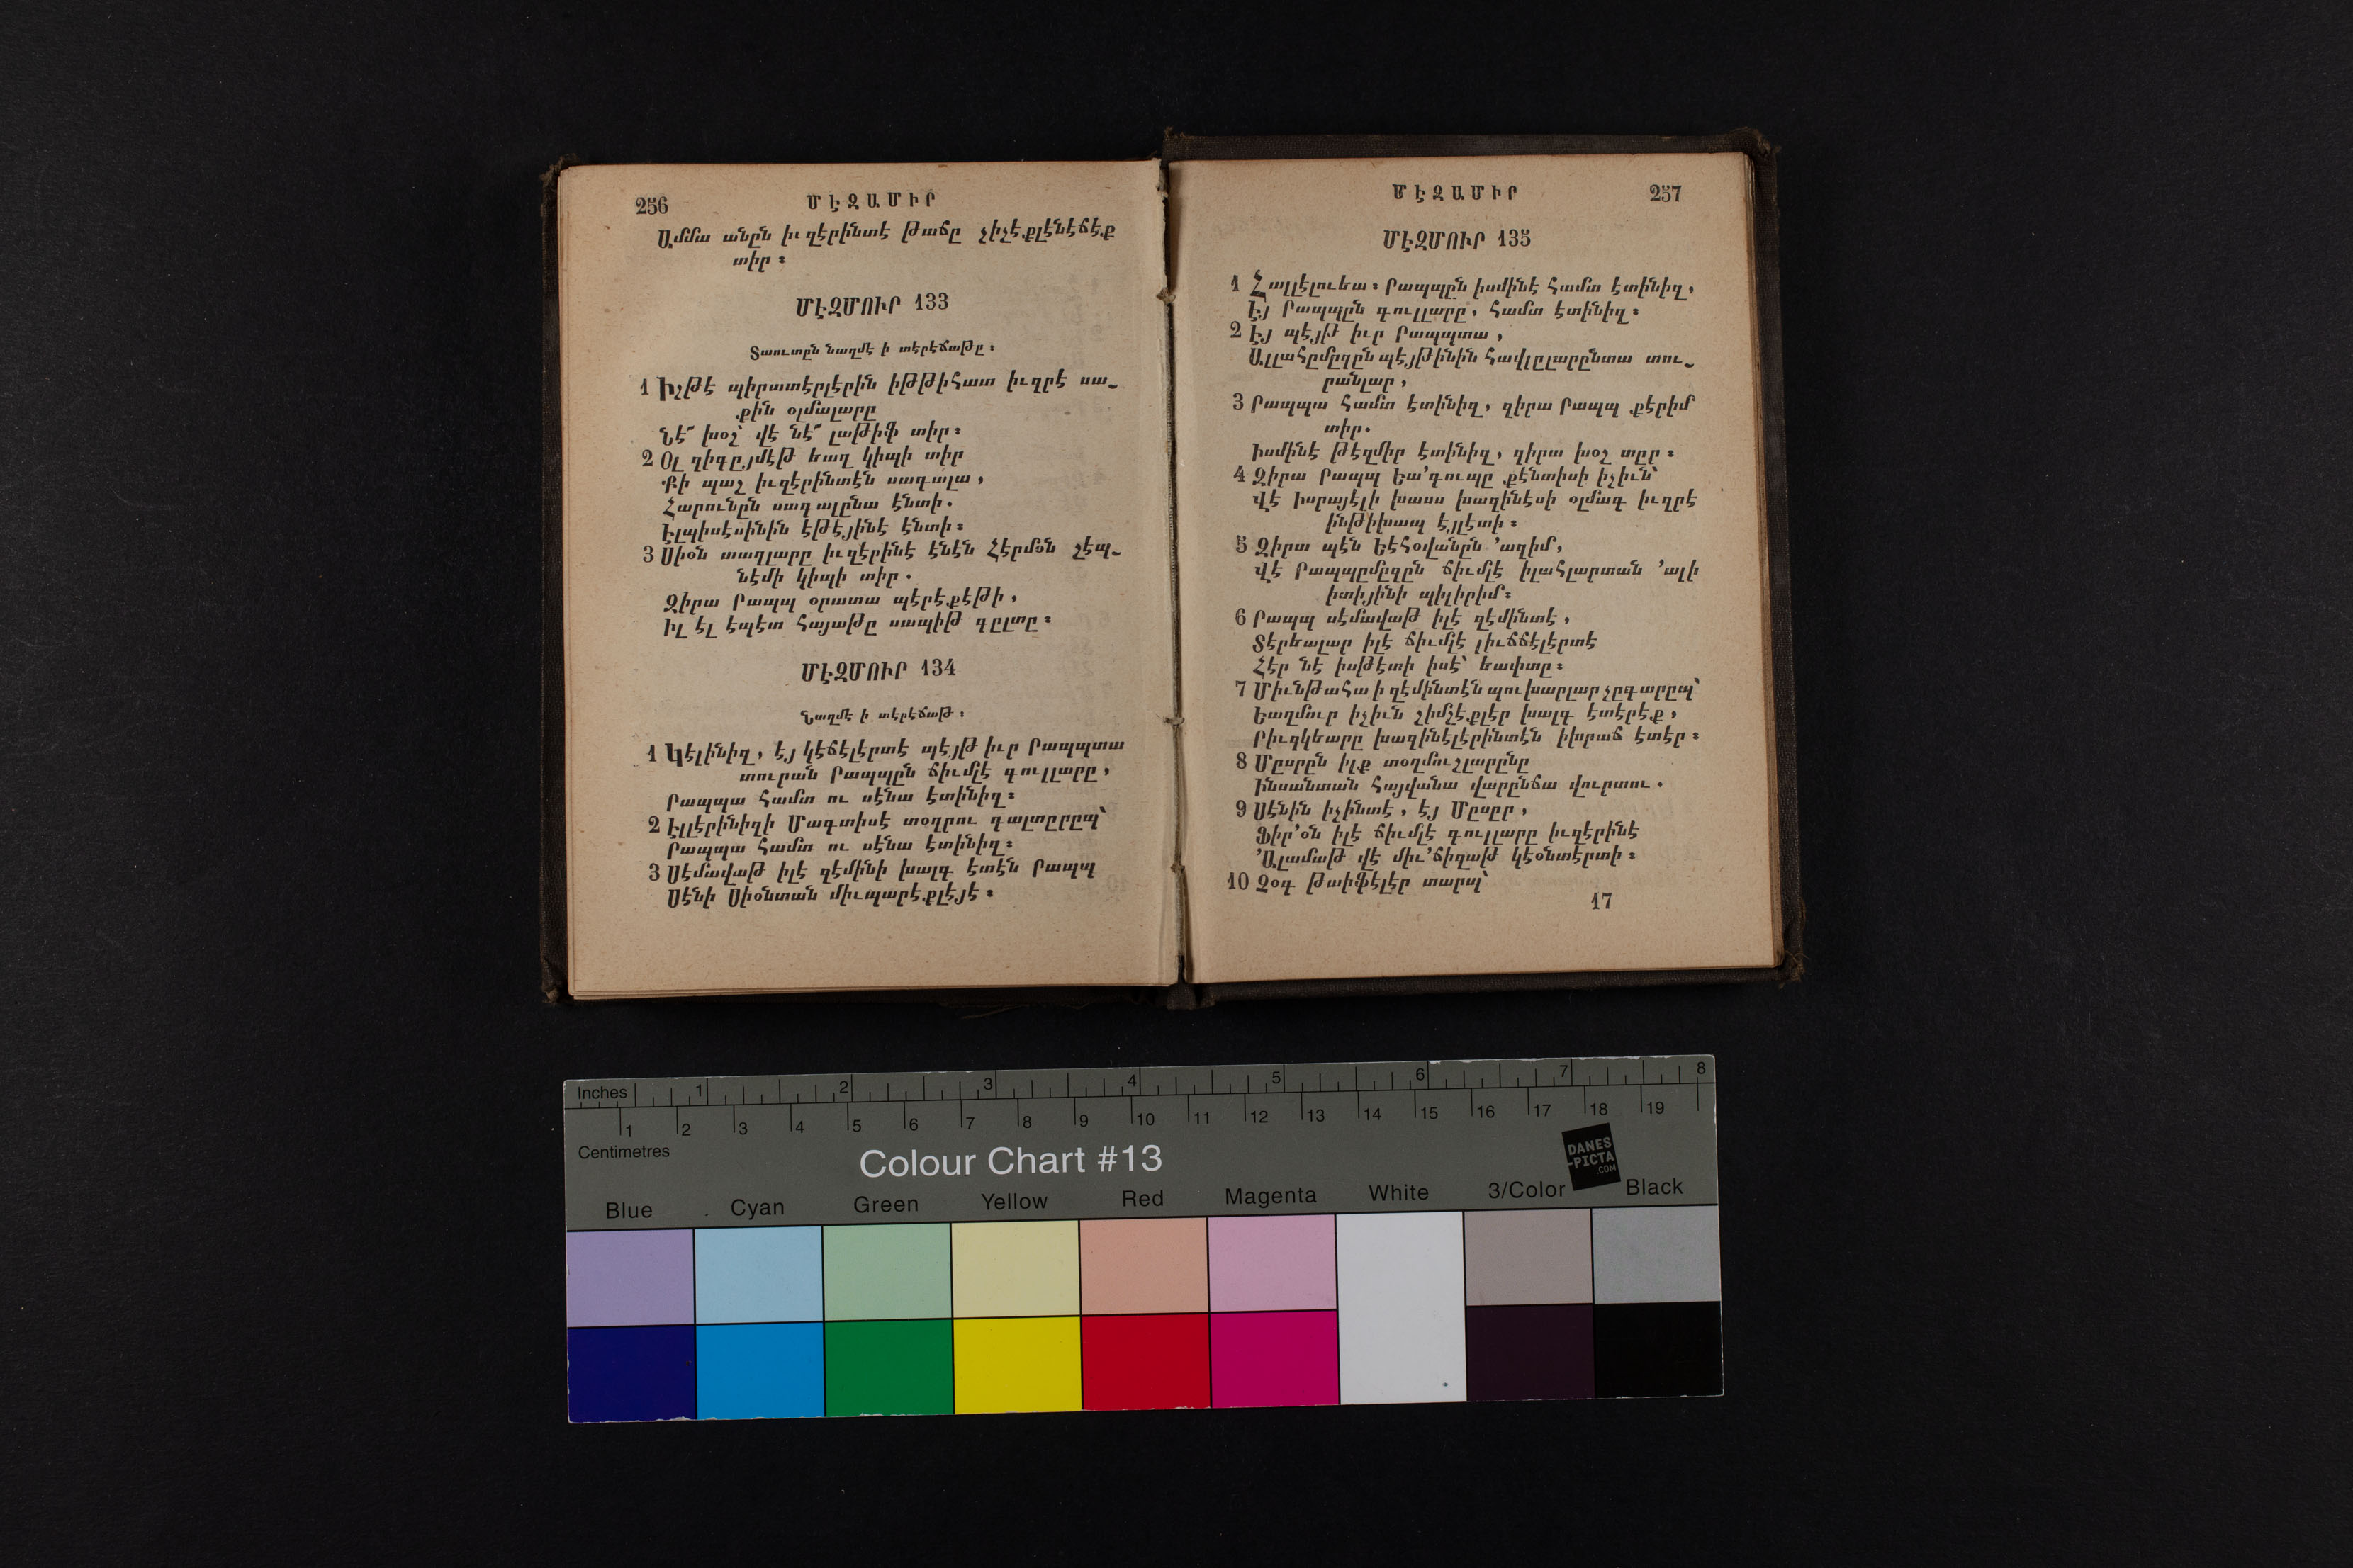 256 ՄԷԶԱՄԻՐ
Ամմա անըն իւզէրինտէ թաճը չիչէքլէնէճէք
տիր։
ՄԷԶՄՈՒՐ 133
Տաուտըն նաղմէ ի տէրէճաթը։
1 Իշթէ պիրատէրլէրին իթթիհատ իւզրէ սա֊
քին օլմալարը
Նէ՜ խօշ՝ վէ նէ՜ լաթիֆ տիր։
2 Օլ զիգըյմէթ եաղ կիպի տիր
Քի պաշ իւզէրինտէն սագալա,
Հարունըն սագալընա էնտի.
Էլպիսէսինին էթէյինէ էնտի։
3 Սիօն տաղլարը իւզէրինէ էնէն Հէրմօն շէպ֊
նէմի կիպի տիր.
Զիրա Րապպ օրատա պէրէքէթի,
Իլ էլ էպէտ հայաթը սապիթ գըլտը։
ՄԷԶՄՈՒՐ 134
Նաղմէ ի տէրէճաթ։
1 Կէլինիզ, էյ կէճէլէրտէ պէյթ իւր Րապպտա
տուրան Րապպըն ճիւմլէ գուլլարը,
Րապպա համտ ու սէնա էտինիզ։
2 Էլլէրինիզի Մագտիսէ տօղրու գալտըրըպ՝
Րապպա համտ ու սէնա էտինիզ։
3 Սէմավաթ իլէ զէմինի խալգ էտէն Րապպ
Սէնի Սիօնտան միւպարէքլէյէ։
ՄԷԶԱՄԻՐ 257
ՄԷԶՄՈՒՐ 135
1 Հալլէլուեա։ Րապպըն իսմինէ համտ էտինիզ,
Էյ Րապպըն գուլլարը, համտ էտինիզ։
2 Էյ պէյթ իւր Րապպտա,
Ալլահըմըզըն պէյթինին հավլըլարընտա տու֊
րանլար,
3 Րապպա համտ էտինիզ, զիրա Րապպ քէրիմ
տիր.
Իսմինէ թէզմիր էտինիզ, զիրա խօշ տըր։
4 Զիրա Րապպ Եա՚գուպը քէնտիսի իչիւն՝
Վէ Իսրայէլի խասս խազինէսի օլմագ իւզրէ
ինթիխապ էյլէտի։
5 Զիրա պէն Եէհօվանըն ՚ազիմ,
Վէ Րապպըմըզըն ճիւմլէ իլահլարտան ՚ալի
իտիյինի պիլիրիմ։
6 Րապպ սէմավաթ իլէ զէմինտէ,
Տէրեալար իլէ ճիւմլէ լիւճճէլէրտէ
Հէր նէ իսթէտի իսէ՝ եափտը։
7 Միւնթահա ի զէմինտէն պուխարլար չըգարըպ՝
Եաղմուր իչիւն շիմշէքլէր խալգ էտէրէք,
Րիւզկեարը խազինէլէրինտէն իխրաճ էտէր։
8 Մըսրըն իլք տօղմուշլարընը
Ինսանտան հայվանա վարընճա վուրտու.
9 Սէնին իչինտէ, էյ Մըսըր,
Ֆիր՚օն իլէ ճիւմլէ գուլլարը իւզէրինէ
՚Ալամաթ վէ միւ՚ճիզաթ կէօնտէրտի։
10 Չօգ թաիֆէլէր տարպ՝
17
Inches 1 2 3 4 5 6 7 8
1 2 3 4 5 6 7 8 9 10 11 12 13 14 15 16 17 18 19
Centimetres
Colour Chart #13
DANES
-PICTA
.COM
Blue Cyan Green Yellow Red Magenta White 3/Color Black